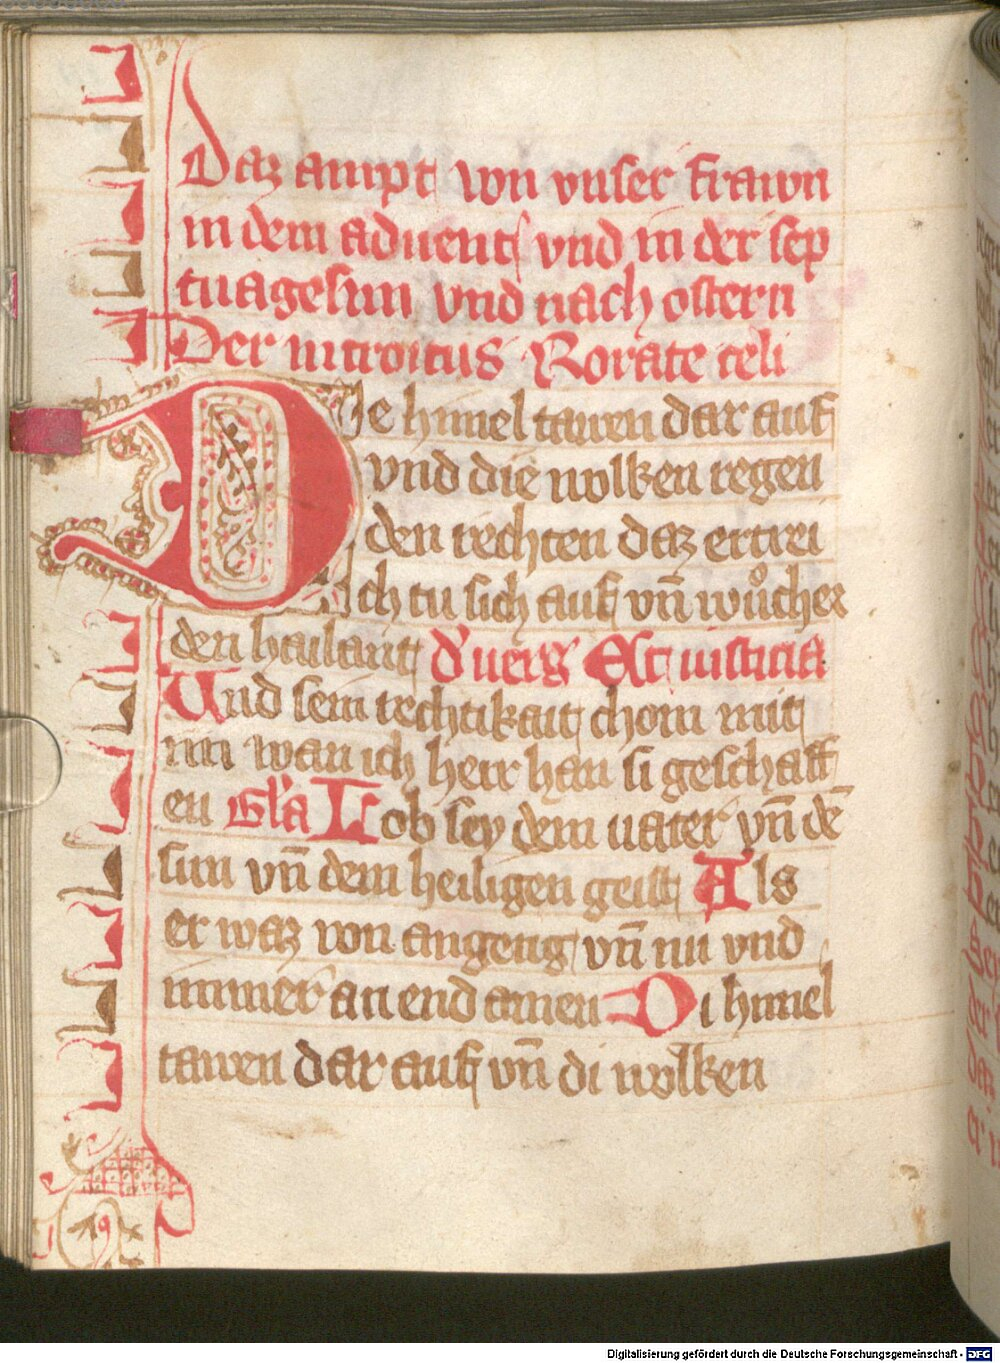 Daz ampt von vnser frawn
in dem aduent vnd in der sep
tuagesim vnd nach ostern
Der introitus Rorate celi
Die himel tawen dar auf
vnd die wolken regen
den rechten daz ertrei
ich tu sich auf vn̄ wůcher
den hailant d' uerß Et iusticia
Und sein rechtikait chom mit
im wan ich herr han si geschaff
en Gl'a Lob sey dem uater vn̄ dē
sun vn̄ dem heiligen geist Als
er waz von angeng vn̄ nu vnd
immer an end amen Di himel
tawen dar auf vn̄ di wolken
Digitalisierung gefördert durch die Deutsche Forschungsgemeinschaft - DFG